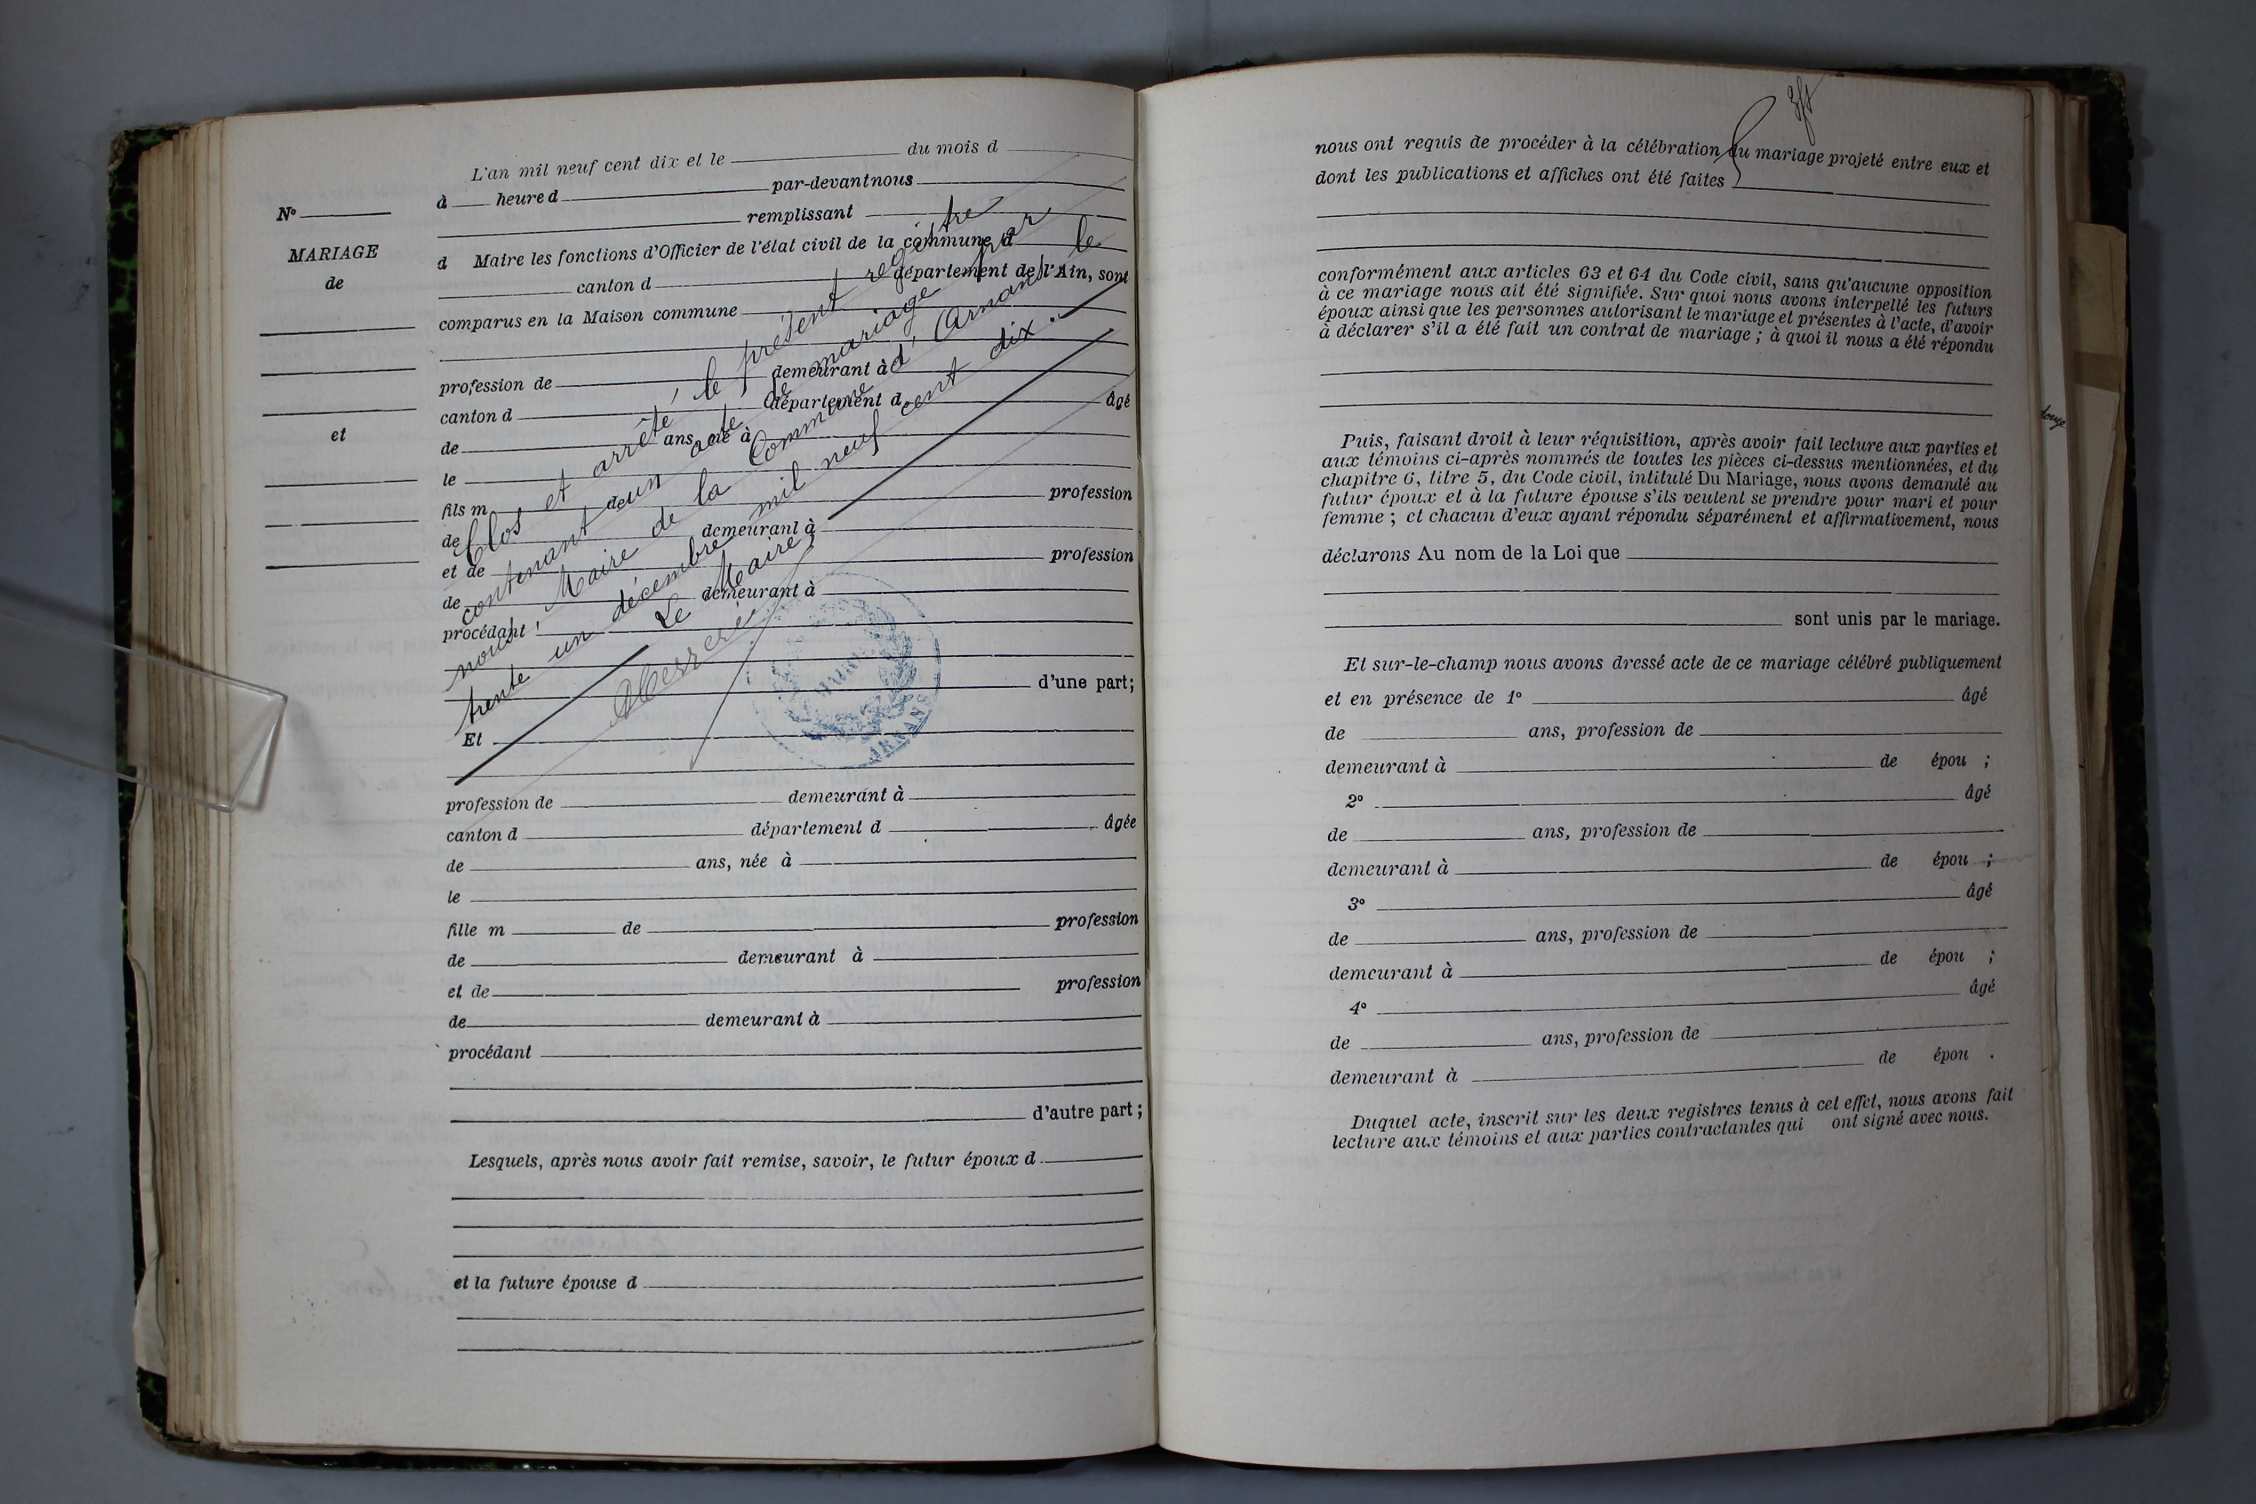 L'an mil neuf cent dix et le du mois d
à heure d par-devant nous
remplissant
d Maire les fonctions d'Officier de l'état civil de la commune d
canton d département de l'Ain, sont
comparus en la Maison commune
profession de demeurant à
canton d département d âgé
de ans, né à
le
fils m de profession
de demeurant à
et de profession
de demeurant à
procédant
d'une part;
Et
profession de demeurant à
canton d département d âgée
de ans, née à
le
fille m de profession
de demeurant à
et de profession
de demeurant à
procédant
d'autre part;
Lesquels, après nous avoir fait remise, savoir, le futur époux d
et la future épouse d
No
MARIAGE
de
et
Clos et arrêté, le présent registre
contenant un acte de mariage par
nous, Maire de la Commune d'Arnans, le
trente un décembre mil neuf cent dix.
Le Maire,
MAIRIE
ARNANS
nous ont requis de procéder à la célébration du mariage projeté entre eux et
dont les publications et affiches ont été faites
conformément aux articles 63 et 64 du Code civil, sans qu'aucune opposition
à ce mariage nous ait été signifiée. Sur quoi nous avons interpellé les futurs
époux ainsi que les personnes autorisant le mariage et présentes à l'acte, d'avoir
à déclarer s'il a été fait un contrat de mariage; à quoi il nous a été répondu
Puis, faisant droit à leur réquisition, après avoir fait lecture aux parties et
aux témoins ci-après nommés de toutes les pièces ci-dessus mentionnées, et du
chapitre 6, titre 5, du Code civil, intitulé Du Mariage, nous avons demandé au
futur époux et à la future épouse s'ils veulent se prendre pour mari et pour
femme; et chacun d'eux ayant répondu séparément et affirmativement, nous
déclarons Au nom de la Loi que
sont unis par le mariage.
Et sur-le-champ nous avons dressé acte de ce mariage célébré publiquement
et en présence de 1° âgé
de ans, profession de
demeurant à de épou ;
2° âgé
de ans, profession de
demeurant à de épou ;
3° âgé
de ans, profession de
demeurant à de épou ;
4° âgé
de ans, profession de
demeurant à de épou .
Duquel acte, inscrit sur les deux registres tenus à cet effet, nous avons fait
lecture aux témoins et aux parties contractantes qui ont signé avec nous.